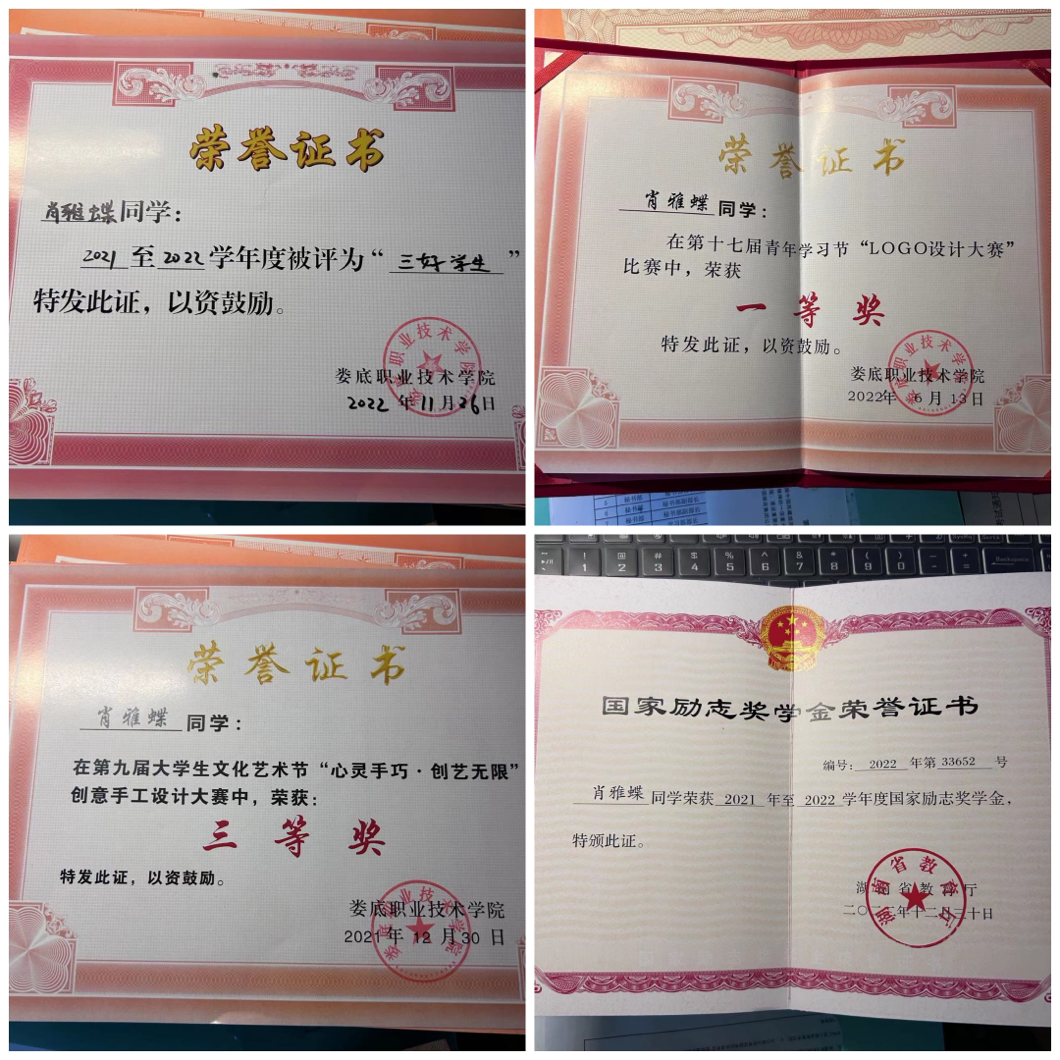 荣誉证书
肖雅蝶同学：
2021至2022学年度被评为“三好学生”
特发此证，以资鼓励。
娄底职业技术学院
2022年11月26日
荣誉证书
肖雅蝶同学：
在第十七届青年学习节“LOGO设计大赛”
比赛中，荣获
一等奖
特发此证，以资鼓励。
娄底职业技术学院
2022年6月13日
荣誉证书
肖雅蝶同学：
在第九届大学生文化艺术节“心灵手巧·创艺无限”
创意手工设计大赛中，荣获：
三等奖
特发此证，以资鼓励。
娄底职业技术学院
2021年12月30日
国家励志奖学金荣誉证书
编号：2022年第33652号
肖雅蝶同学荣获2021年至2022学年度国家励志奖学金，
特颁此证。
湖南省教育厅
十二月三十日